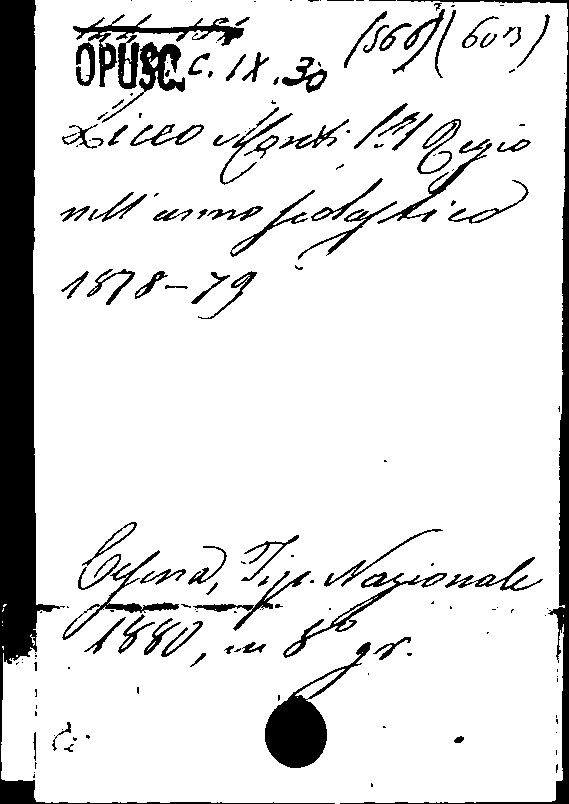 OPUSC. C. IX. 30 (566) (603)
Liceo Monti (Il) Regio
nell' anno scolastico
1878-79
Cesena, Tip. Nazionale
1880, in 8° gr.